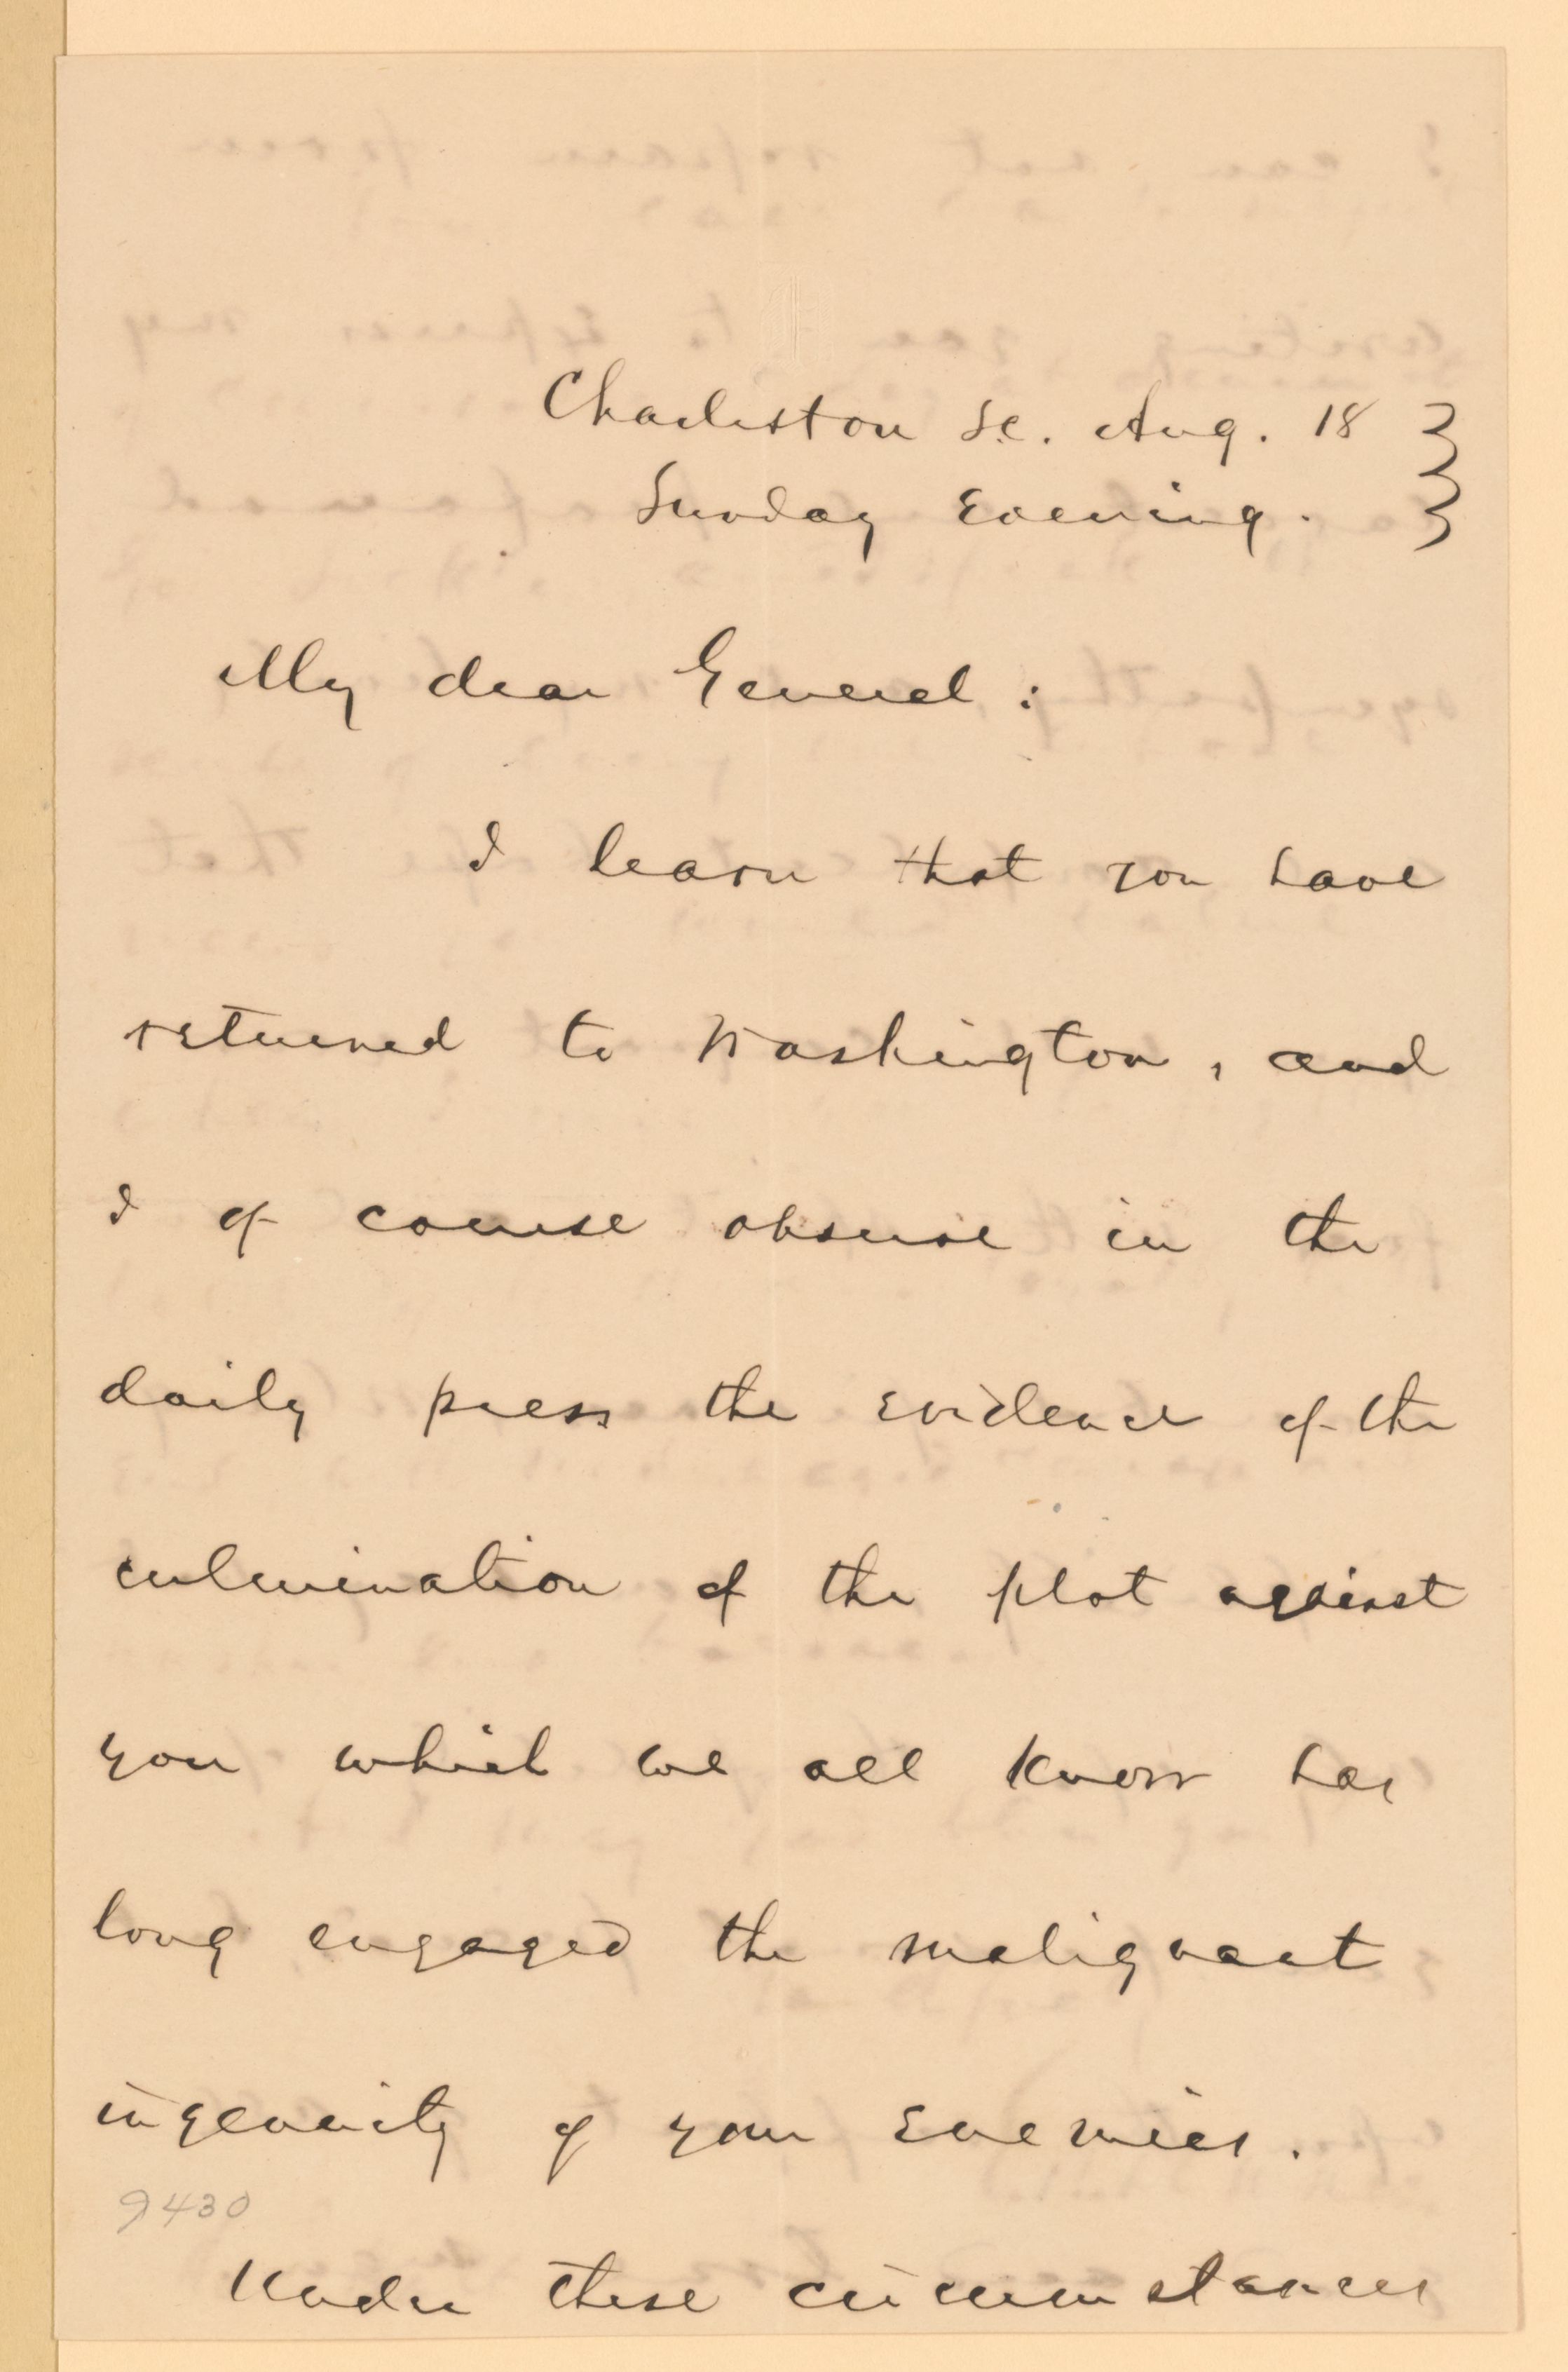 Charleston S.C. Aug. 18
Sunday Evening.
My dear General:
I learn that you have
returned to Washington, and
I of course observe in the
daily press the evidence of the
culmination of the plot against
you which we all know has
long engaged the malignant
ingenuity of your enemies.
9430
Under these circumstances